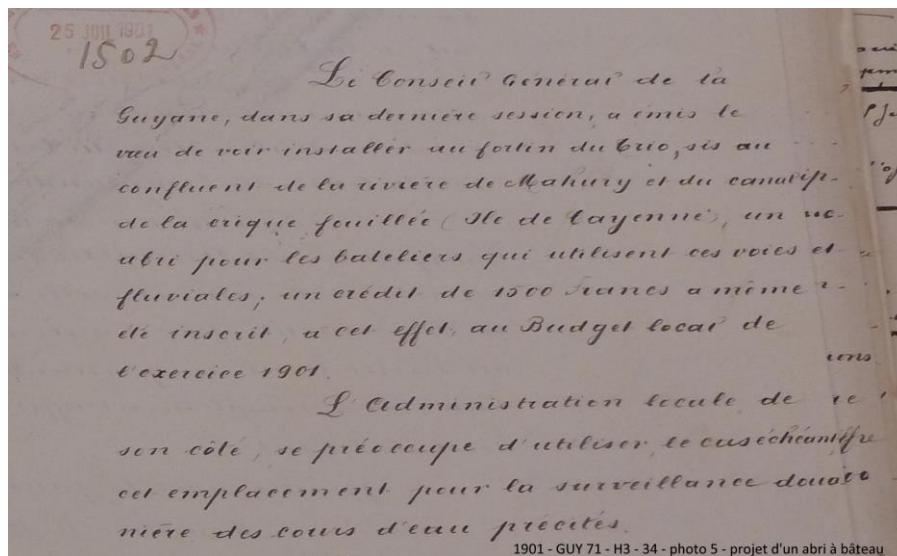 25 JUIL 1901
1502
Le Conseil Général de la
Guyane, dans sa dernière session, a émis le
vœu de voir installer au fortin du Trio, sis au
confluent de la rivière de Mahury et du canal
de la crique fouillée (Ile de Cayenne), un
abri pour les bateliers qui utilisent ces voies
fluviales; un crédit de 1500 francs a même
été inscrit, à cet effet, au Budget local de
l'exercice 1901.
L'Administration locale de
son côté, se préoccupe d'utiliser, le cas échéant
cet emplacement pour la surveillance doua
nière des cours d'eau précités.
1901 - GUY 71 - H3 - 34 - photo 5 - projet d'un abri à bâteau